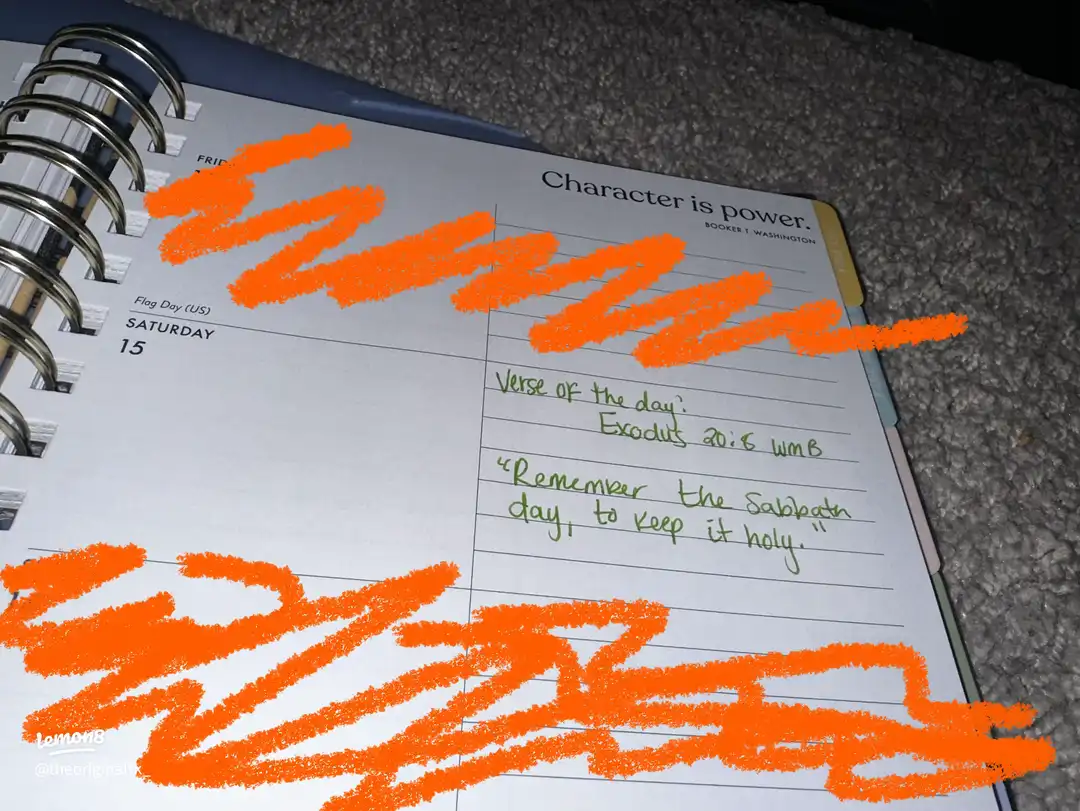 Character is power.
BOOKER T. WASHINGTON
Flag Day (US)
SATURDAY
15
Verse of the day:
Exodus 20:8 WMB
"Remember the Sabbath
day, to keep it holy."
lemon8